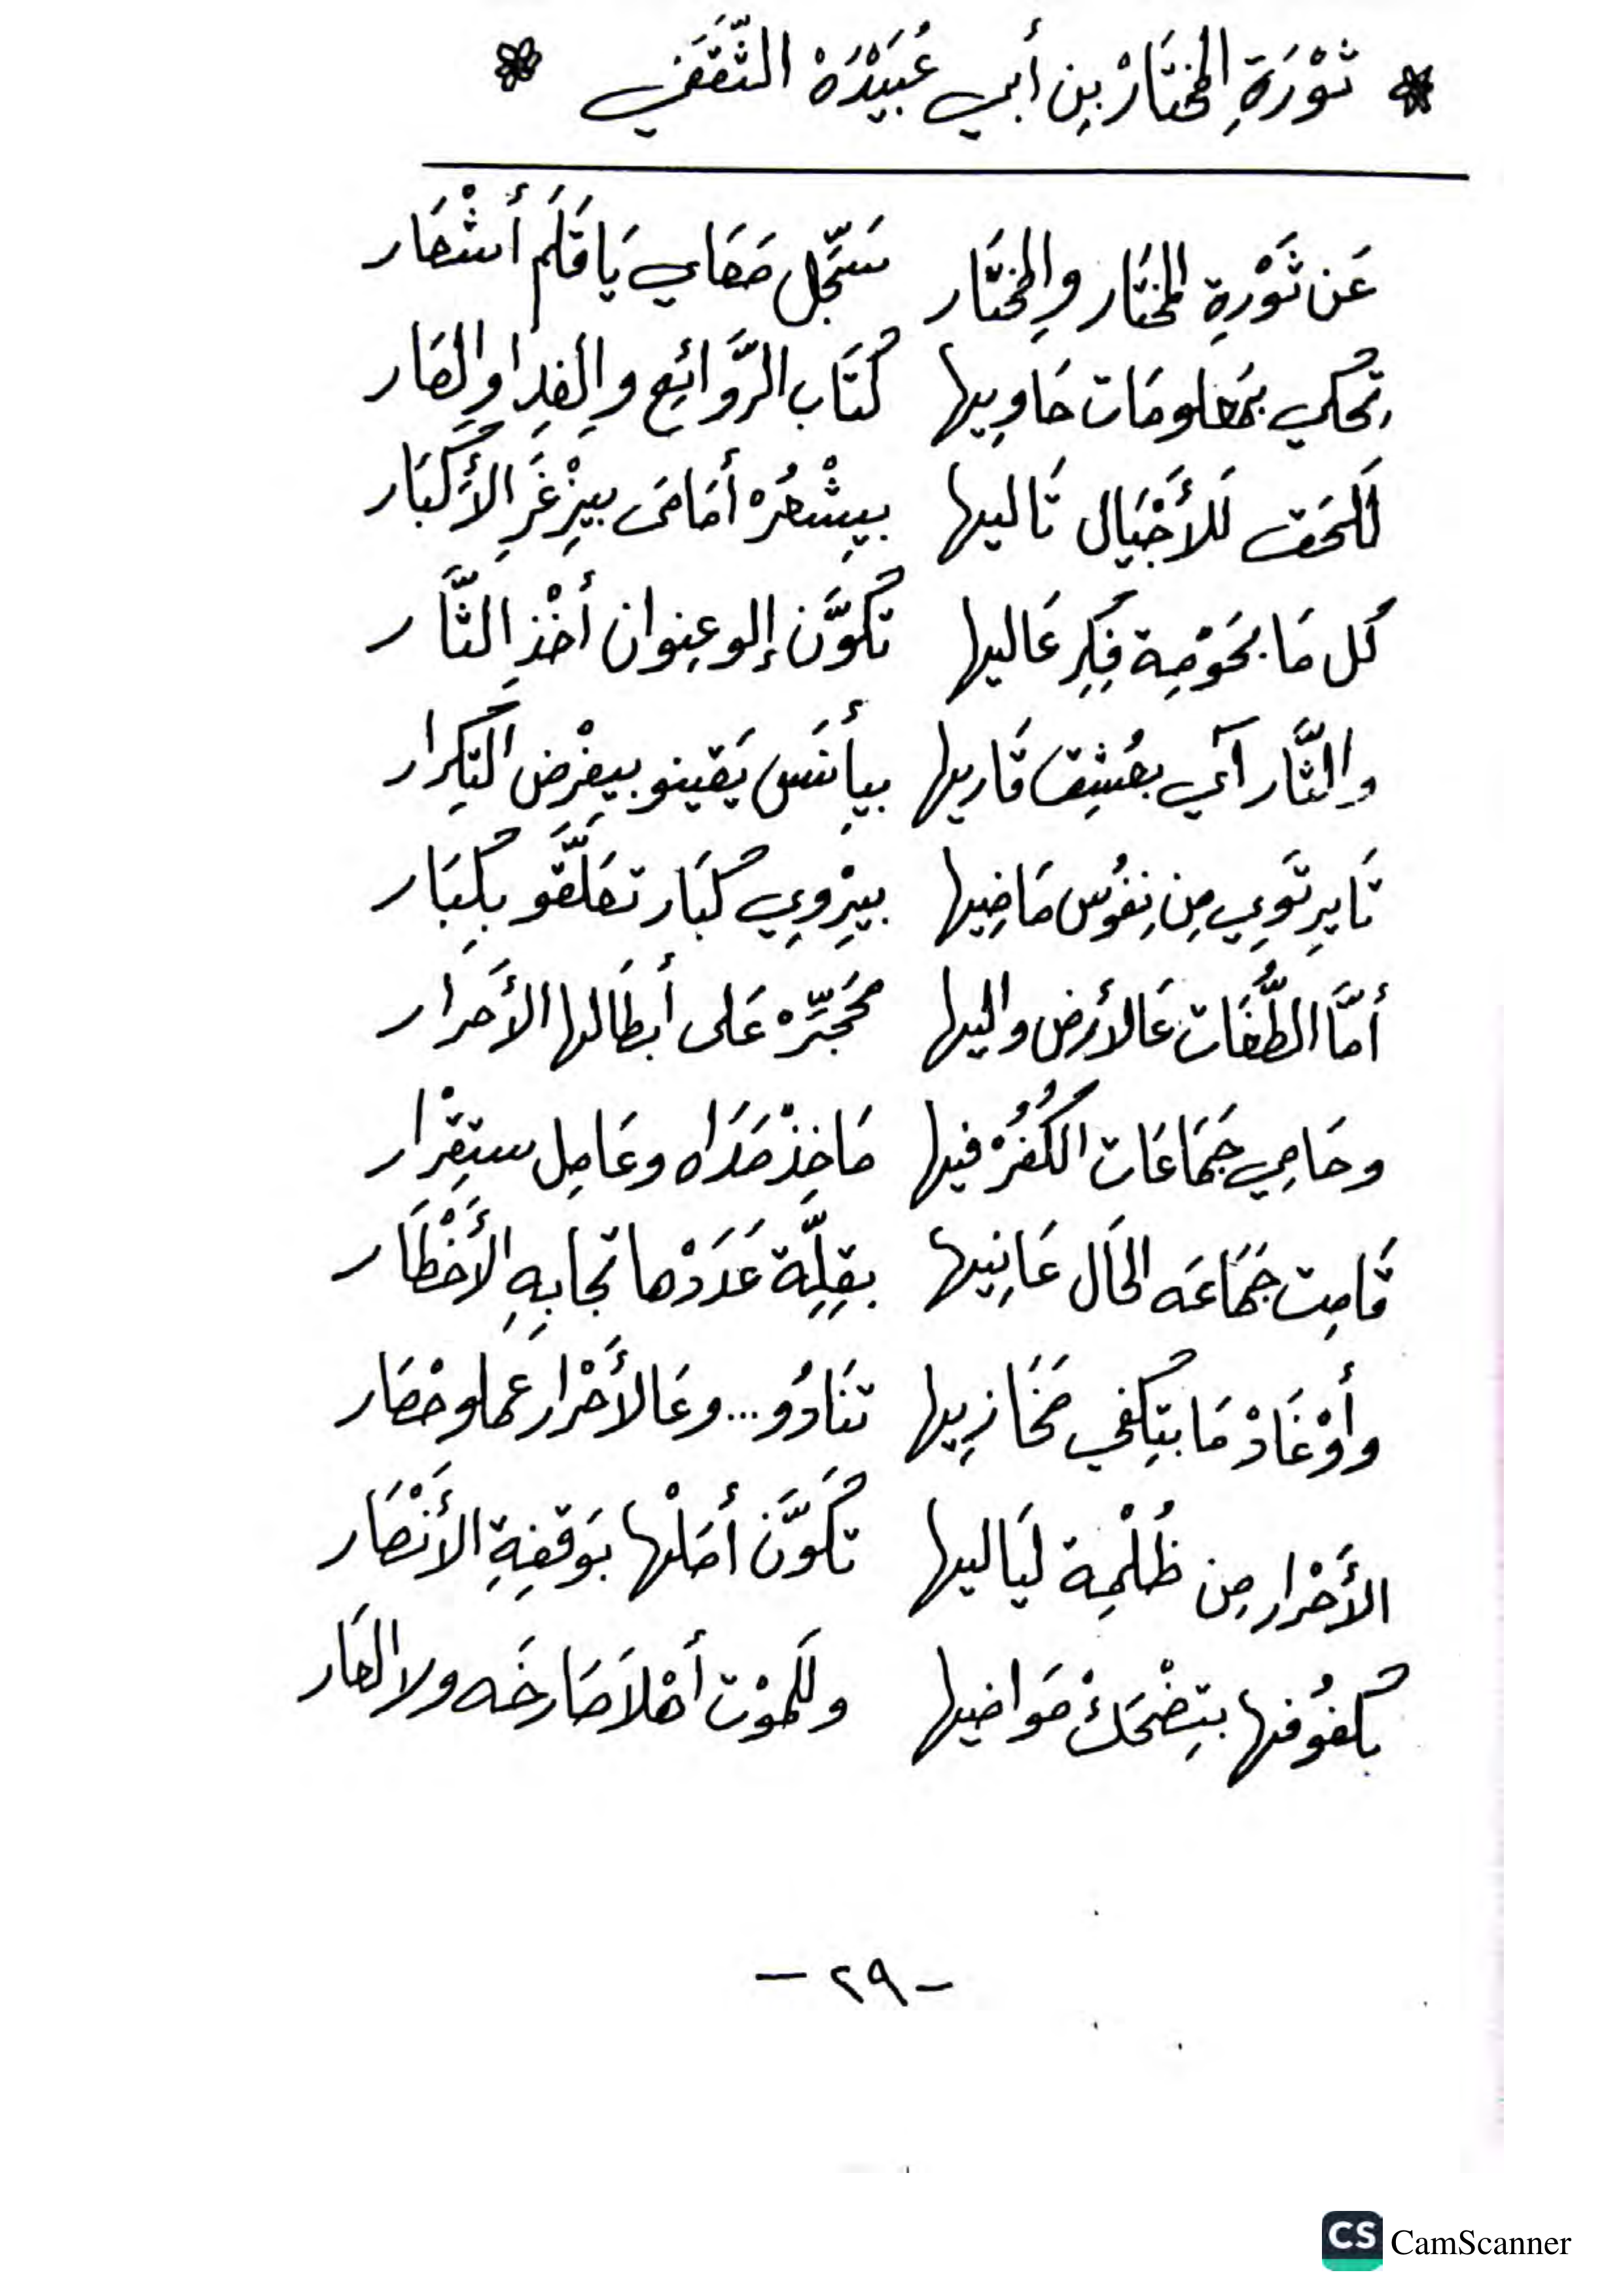 * ثَوْرَةِ المختَارْ بِن أَبي عُبَيْدُهْ الثَّقَفي *
عَن ثَوْرِة المختَار والمختَار سَجِّل مَعَاي يَا قَلَم أَشْعَار
تحكي بمَعلومَات حَاويها كُتَاب الرَّوائِع والفِدا والعَار
لَلحَق لَلأَجْيَال تَاليها بيِشْعُرْ أمَامَى بيِزْغَرِ الأَكْبَار
كُل مَا بحَوْمِة فِكِر عَاليها تكَوَّن إلو عِنوان أَخْذِ الثَّار
والثَّار آي بعُشِق قَاريها بيأنَس يَقينو بيِفْرُض التِكرار
تَا يرتَوِي مِن نِفوُس مَاضِيها بيِرْوِي كبَار تعَلَّقو بِكبَار
أمَّا الطُّغَات عَالأرض واليها مجَبَّرْه عَلى أبطَالها الأَحرار
وحَامِي جَمَاعَات الكُفُرْ فيها مَاخِذْ مَدَاه وعَامِل ستِقْرار
قَامِت جَمَاعَه الحَال عَانِيها بقِلِّة عَدَدْها تجابِهِ الأَخْطَار
وأوْغَادْ مَا بتِكفي مَخَازِيها تنَادُو ... وعَالأَحْرار عملو حْصَار
الأَحْرار مِن ظُلْمِة ليَاليها تكَوَّن أمَلْها بوَقفِةِ الأَنْصَار
بكفُوفها بتِضْحَكْ مَواضيها وللمَوْت أهْلاً صَارخَه ولا العَار
- ٢٩ -
CS CamScanner